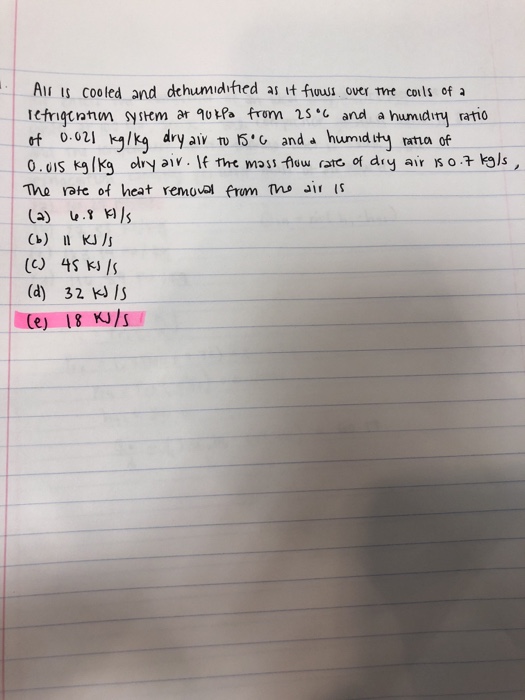 Air is cooled and dehumidified as it flows over the coils of a
refrigeration system at 90 kPa from 25°C and a humidity ratio
of 0.021 kg/kg dry air to 15°C and a humidity ratio of
0.015 kg/kg dry air. If the mass flow rate of dry air is 0.7 kg/s,
The rate of heat removal from the air is
(a) 6.8 kJ/s
(b) 11 kJ/s
(c) 45 kJ/s
(d) 32 kJ/s
(e) 18 kJ/s